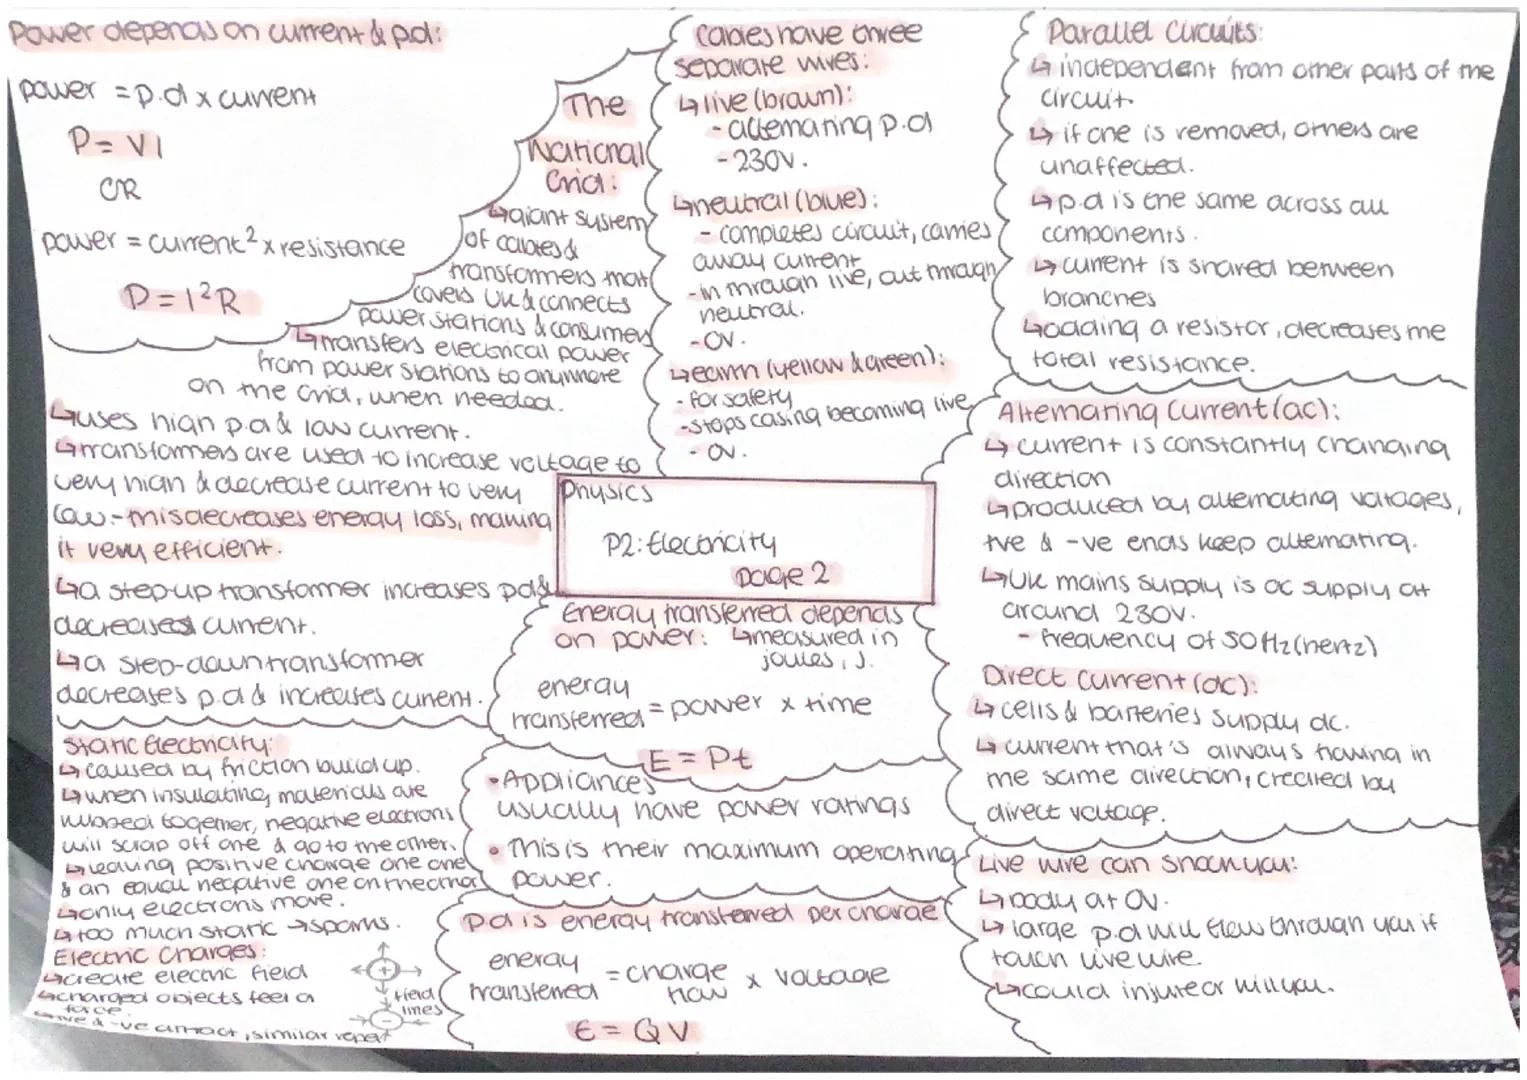 Power depends on current & p.d:
power = p.d x current
P = VI
OR
power = current² x resistance
P = I²R
The
National
Grid:
↳ giant system
of cables &
transformers that
covers UK & connects
power stations & consumers
↳ transfers electrical power
from power stations to anywhere
on the grid, when needed.
↳ uses high p.d & low current.
↳ transformers are used to increase voltage to
very high & decrease current to very
low:- this decreases energy loss, making
it very efficient.
↳ a step-up transformer increases pd &
decreases current.
↳ a step-down transformer
decreases p.d & increases current.
Static Electricity:
↳ caused by friction build up.
↳ when insulating materials are
rubbed together, negative electrons
will scrap off one & go to the other.
↳ leaving positive charge one one
& an equal negative one on the other
↳ only electrons move.
↳ too much static → sparks.
Electric Charges:
↳ create electric field
↳ charged objects feel a
force.
↳ +ve & -ve attract, similar repel
+
-
field
lines
Cables have three
separate wires:
↳ live (brown):
- alternating p.d
- 230V.
↳ neutral (blue):
- completes circuit, carries
away current
- in through live, out through
neutral.
- 0V.
↳ earth (yellow & green):
- for safety
- stops casing becoming live
- 0V.
Physics
P2: Electricity
page 2
Energy transferred depends
on power: ↳ measured in
joules, J.
energy
transferred = power x time
E = Pt
• Appliances
usually have power ratings
• This is their maximum operating
power.
p.d is energy transferred per charge
energy
transferred = charge
flow x voltage
E = QV
Parallel Circuits:
↳ independent from other parts of the
circuit
↳ if one is removed, others are
unaffected.
↳ p.d is the same across all
components.
↳ current is shared between
branches
↳ adding a resistor, decreases the
total resistance.
Alternating Current (ac):
↳ current is constantly changing
direction
↳ produced by alternating voltages,
+ve & -ve ends keep alternating.
↳ UK mains supply is ac supply at
around 230V.
- frequency of 50Hz (hertz)
Direct Current (dc):
↳ cells & batteries supply dc.
↳ current that's always flowing in
the same direction, created by
direct voltage.
Live wire can shock you:
↳ body at 0V.
↳ large p.d will flow through you if
touch live wire.
↳ could injure or kill you.